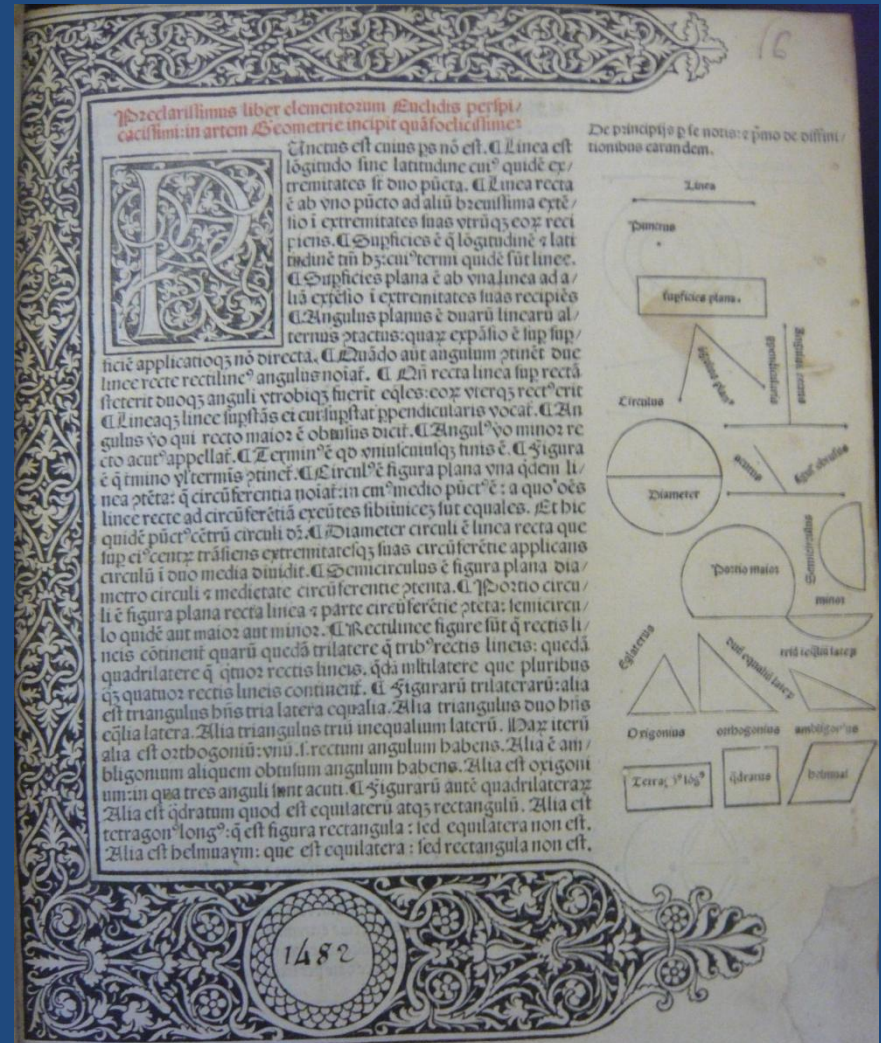 16
Preclarissimus liber elementorum Euclidis perspi/
cacissimi: in artem Geometrie incipit quãfoelicissime:
Unctus est cuius ps nõ est. ¶ Linea est
lõgitudo sine latitudine cuiꝰ quidẽ ex/
tremitates st duo pũcta. ¶ Linea recta
ẽ ab vno pũcto ad aliũ breuissima extẽ/
sio ĩ extremitates suas vtrũqꝫ eoꝝ reci
piens. ¶ Supficies ẽ q̃ lõgitudinẽ ⁊ lati
tudinẽ tm̃ hꝫ: cuiꝰ termi quidẽ sũt linee.
¶ Supficies plana ẽ ab vna linea ad a/
liã extẽsio ĩ extremitates suas recipiẽs
¶ Angulus planus ẽ duarũ linearũ al/
ternus ꝯtactus: quaꝝ expãsio ẽ sup sup/
ficiẽ applicatioqꝫ nõ directa. ¶ Quãdo aut angulum ꝯtinẽt due
linee recte rectilineꝰ angulus noiat̃. ¶ Qñ recta linea sup rectã
steterit duoqꝫ anguli vtrobiqꝫ fuerit eq̃les: eoꝝ vterqꝫ rectꝰ erit
¶ Lineaqꝫ linee supstãs ei cui supstat ppendicularis vocat̃. ¶ An
gulus vo qui recto maior ẽ obtusus dicit̃. ¶ Angulꝰ vo minor re
cto acutꝰ appellat̃. ¶ Terminꝰ ẽ qd vniuscuiusqꝫ finis ẽ. ¶ Figura
ẽ q̃ tmino vl terminis ꝯtinet̃. ¶ Circulꝰ ẽ figura plana vna q̃dem li/
nea ꝯtẽta: q̃ circũferentia noiat̃: in cuiꝰ medio pũctꝰ ẽ: a quo oẽs
linee recte ad circũferẽtiã exeũtes sibiinuicẽ sut equales. Et hic
quidẽ pũctꝰ cẽtrũ circuli dr̃. ¶ Diameter circuli ẽ linea recta que
sup eiꝰ centꝝ trãsiens extremitatesqꝫ suas circũferẽtie applicans
circulũ ĩ duo media diuidit. ¶ Semicirculus ẽ figura plana dia/
metro circuli ⁊ medietate circũferentie ꝯtenta. ¶ Portio circu/
li ẽ figura plana recta linea ⁊ parte circũferẽtie ꝯtẽta: semicircu/
lo quidẽ aut maior aut minor. ¶ Rectilinee figure sũt q̃ rectis li/
neis cõtinent̃ quarũ quedã trilatere q̃ tribꝰ rectis lineis: quedã
quadrilatere q̃ q̃tuor rectis lineis. q̃dã multilatere que pluribus
qꝫ quatuor rectis lineis continent̃. ¶ Figurarũ trilaterarũ: alia
est triangulus hñs tria latera equalia. Alia triangulus duo hñs
eq̃lia latera. Alia triangulus triũ inequalium laterũ. Haꝝ iterũ
alia est orthogoniũ: vnũ .s. rectum angulum habens. Alia ẽ am/
bligonium aliquem obtusum angulum habens. Alia est oxigoni
um: in qua tres anguli sunt acuti. ¶ Figurarũ autẽ quadrilateraꝝ
Alia est q̃dratum quod est equilaterũ atqꝫ rectangulũ. Alia est
tetragonꝰ longꝰ: q̃ est figura rectangula: sed equilatera non est.
Alia est helmuaym: que est equilatera: sed rectangula non est.
De principijs p se notis: ⁊ p̃mo de diffini/
tionibus earundem.
Linea
Punctus
supficies plana.
Circulus
Diameter
acutus
Portio maior
Semicirculus
minor
Oxigonius
orthogonius
q̃dratus
1482